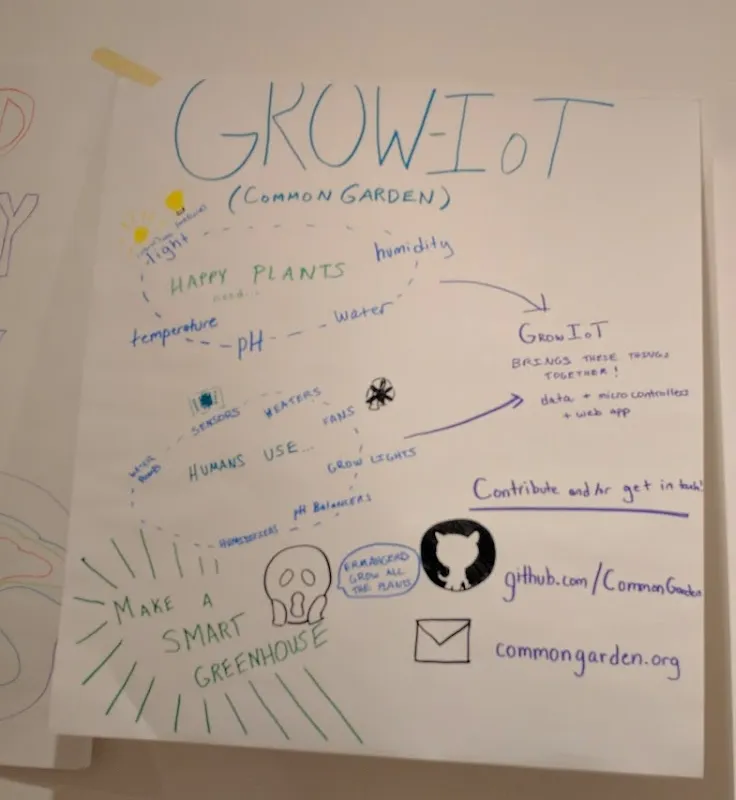 GROW-IoT
(COMMON GARDEN)
light
humidity
HAPPY PLANTS
need...
temperature
pH
water
GROWIOT
BRINGS THESE THINGS
TOGETHER!
data + microcontrollers
+ web app
SENSORS
HEATERS
FANS
WATER
PUMPS
HUMANS USE...
GROW LIGHTS
pH BALANCERS
HUMIDIFIERS
Contribute and/or get in touch!
MAKE A
SMART
GREENHOUSE
ERMAHGERD
GROW ALL
THE PLANTS
github.com/CommonGarden
commongarden.org